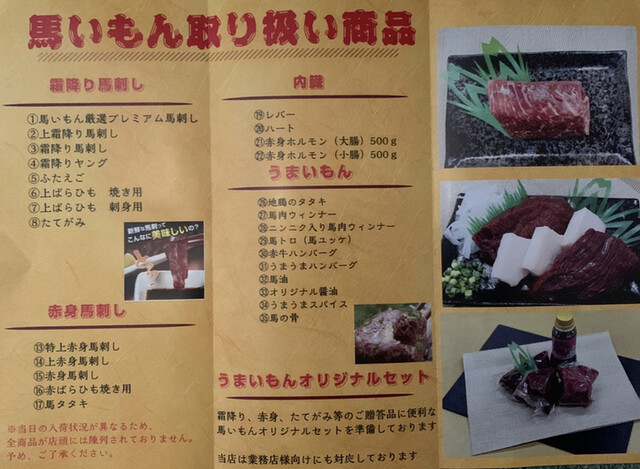 馬いもん取り扱い商品
霜降り馬刺し
①馬いもん厳選プレミアム馬刺し
②上霜降り馬刺し
③霜降り馬刺し
④霜降りヤング
⑤ふたえご
⑥上ばらひも 焼き用
⑦上ばらひも 刺身用
⑧たてがみ
新鮮な馬刺って
こんなに美味しいの?
赤身馬刺し
⑬特上赤身馬刺し
⑭上赤身馬刺し
⑮赤身馬刺し
⑯赤ばらひも焼き用
⑰馬タタキ
※当日の入荷状況が異なるため、
全商品が店頭には陳列されておりません。
予め、ご了承ください。
内臓
⑲レバー
⑳ハート
㉑赤身ホルモン(大腸)500g
㉒赤身ホルモン(小腸)500g
うまいもん
㉖地鶏のタタキ
㉗馬肉ウィンナー
㉘ニンニク入り馬肉ウィンナー
㉙馬トロ(馬ユッケ)
㉚赤牛ハンバーグ
㉛うまうまハンバーグ
㉜馬油
㉝オリジナル醤油
㉞うまうまスパイス
㉟馬の骨
うまいもんオリジナルセット
霜降り、赤身、たてがみ等のご贈答品に便利な
馬いもんオリジナルセットを準備しております
当店は業務店様向けにも対応しております